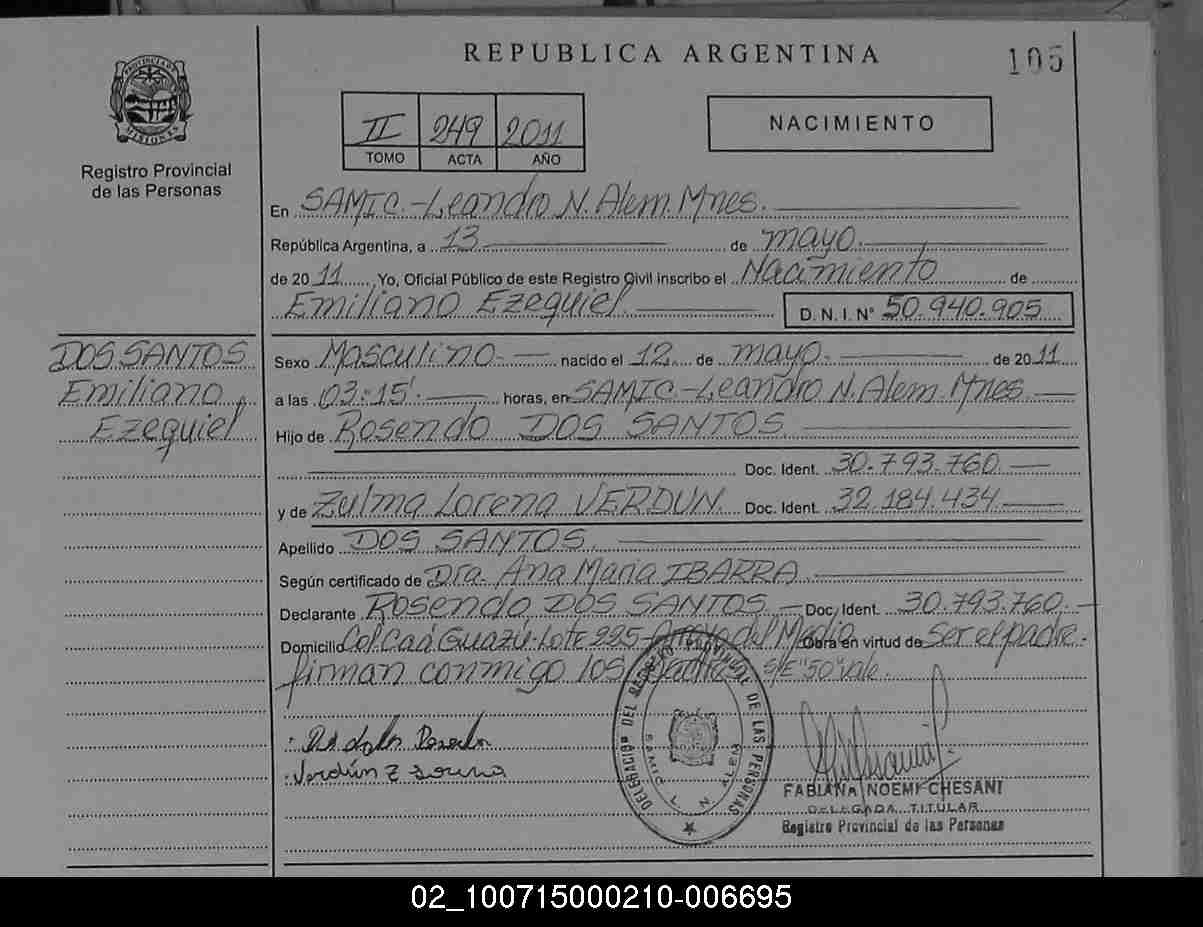 REPUBLICA ARGENTINA
105
PROVINCIA DE MISIONES
Registro Provincial
de las Personas
II 249 2011
TOMO ACTA AÑO
NACIMIENTO
En SAMIC.-Leandro N. Alem. Mnes.
República Argentina, a 13 de mayo.
de 2011 Yo, Oficial Público de este Registro Civil inscribo el Nacimiento de
Emiliano Ezequiel. D.N.I. N° 50.940.905
DOS SANTOS
Emiliano
Ezequiel
Sexo Masculino.- nacido el 12 de mayo. de 2011
a las 03:15'. horas, en SAMIC.-Leandro N. Alem. Mnes.
Hijo de Rosendo DOS SANTOS
Doc. Ident. 30.793.760
y de Zulma Lorena VERDUN. Doc. Ident. 32.184.434
Apellido DOS SANTOS.
Según certificado de Dra. Ana Maria IBARRA
Declarante Rosendo DOS SANTOS Doc. Ident. 30.793.760.
Domicilio Col. Caá Guazú-Lote 225-Arroyo del Medio Obra en virtud de ser el padre.
firman conmigo los padres S/E "50" vale.
DELEGACION DEL REGISTRO PROVINCIAL DE LAS PERSONAS
SAMIC L. N. ALEM
Verdún Z
FABIANA NOEMI CHESANI
DELEGADA TITULAR
Registro Provincial de las Personas
02_100715000210-006695